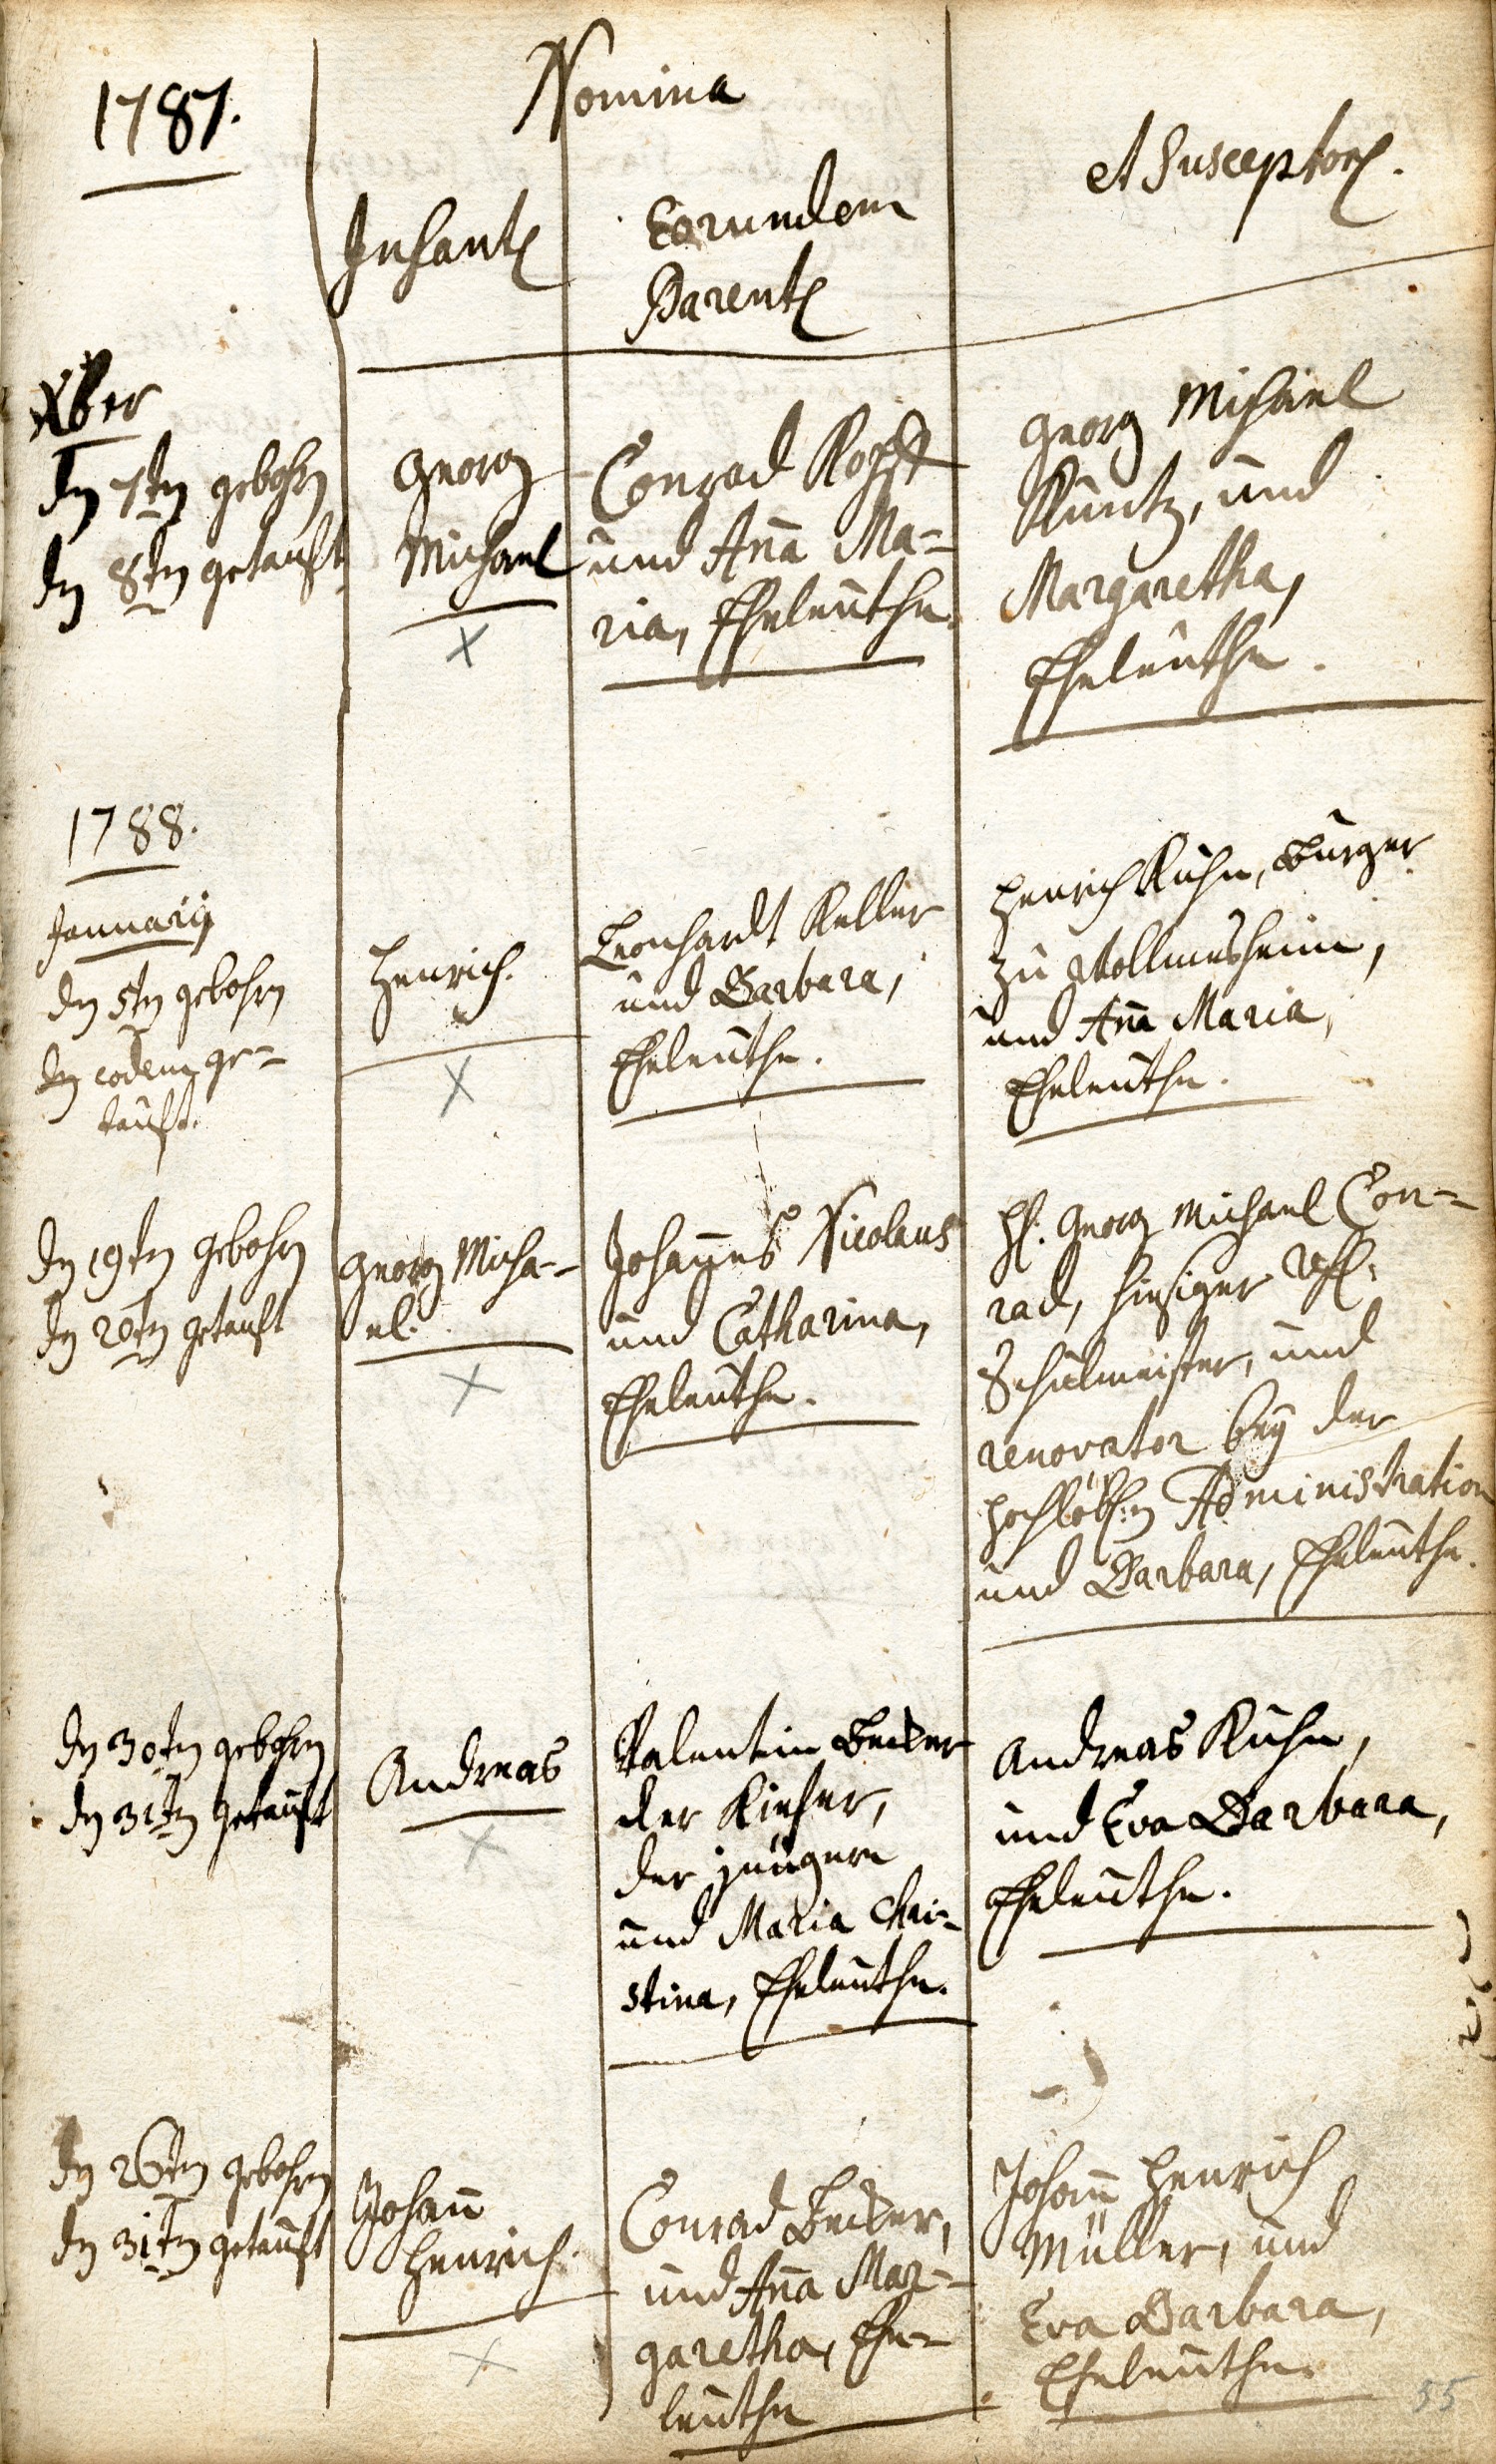 1787.
Nomina
Infant
Eorundem
Parent
et Susceptor.
Xber
den 7ten gebohren
den 8ten getauft
Georg
Michael
Conrad
und Aña Ma=
ria, Eheleuthe.
Georg Michael
Kuntz, und
Margaretha,
Eheleuthe.
1788.
Januarij
den 5ten gebohren
den eodem ge=
tauft.
Henrich.
Leonhardt Keller
und Barbara,
Eheleuthe.
Henrich Kuhn, Burger
zu Wollmesheim,
und Aña Maria,
Eheleuthe.
den 19ten gebohren
den 20ten getauft
Georg Micha=
el.
Johañes Nicolaus
und Catharina,
Eheleuthe.
H. Georg Michael Con=
rad, hiesiger
Schulmeister, und
renovator bey der
hochlöbl.n Administration
und Barbara, Eheleuthe.
den 30ten gebohren
den 31ten getauft
Andreas
Valentin Becker
der Kiefer,
der jüngere
und Maria Chri=
stina, Eheleuthe.
Andreas Kuhn,
und Eva Barbara,
Eheleuthe.
den 26ten gebohren
den 31ten getauft
Johañ
Henrich.
Conrad Becker,
und Aña Mar=
garetha, Ehe=
leuthe
Johañ Henrich
Müller, und
Eva Barbara,
Eheleuthe.
55